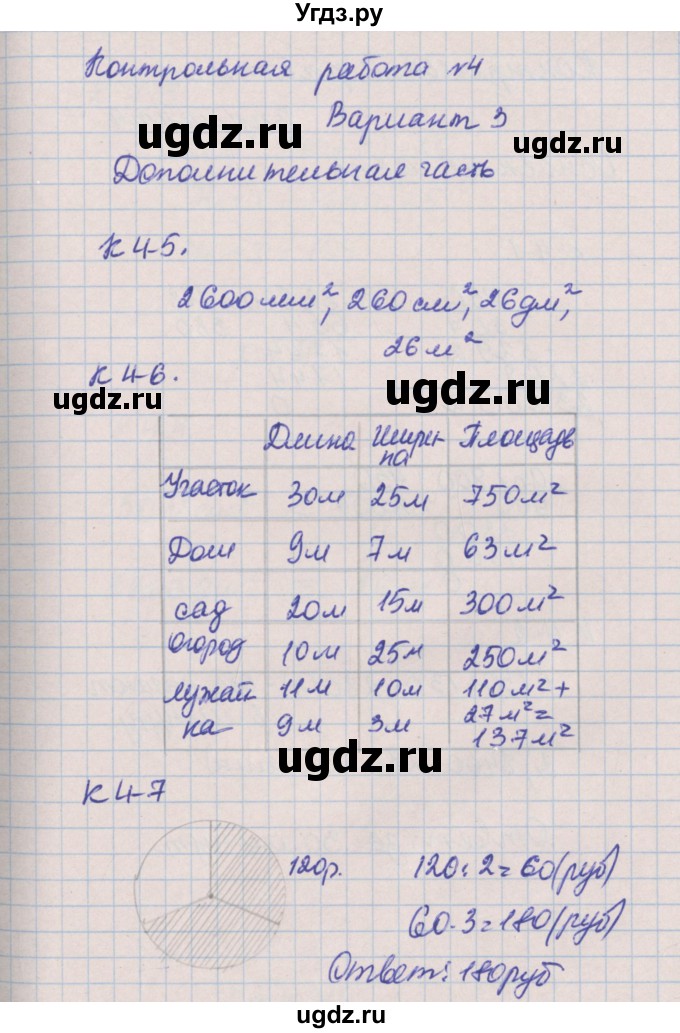 Угдз.ру
Контрольная работа №4
ugdz.ru Вариант 3 ugdz.ru
Дополнительная часть
К 4-5.
2600мм², 260см², 26дм²,
26м²
К 4-6.
ugdz.ru ugdz.ru
Длина Шири- Площадь
на
Участок 30м 25м 750м²
Дом 9м 7м 63м²
сад 20м 15м 300м²
огород 10м 25м 250м²
лужай 11м 10м 110м²+
ка 9м 3м 27м²=
137м²
ugdz.ru
К 4-7
120р. 120:2=60(руб)
60·3=180(руб)
Ответ: 180руб
ugdz.ru ugdz.ru